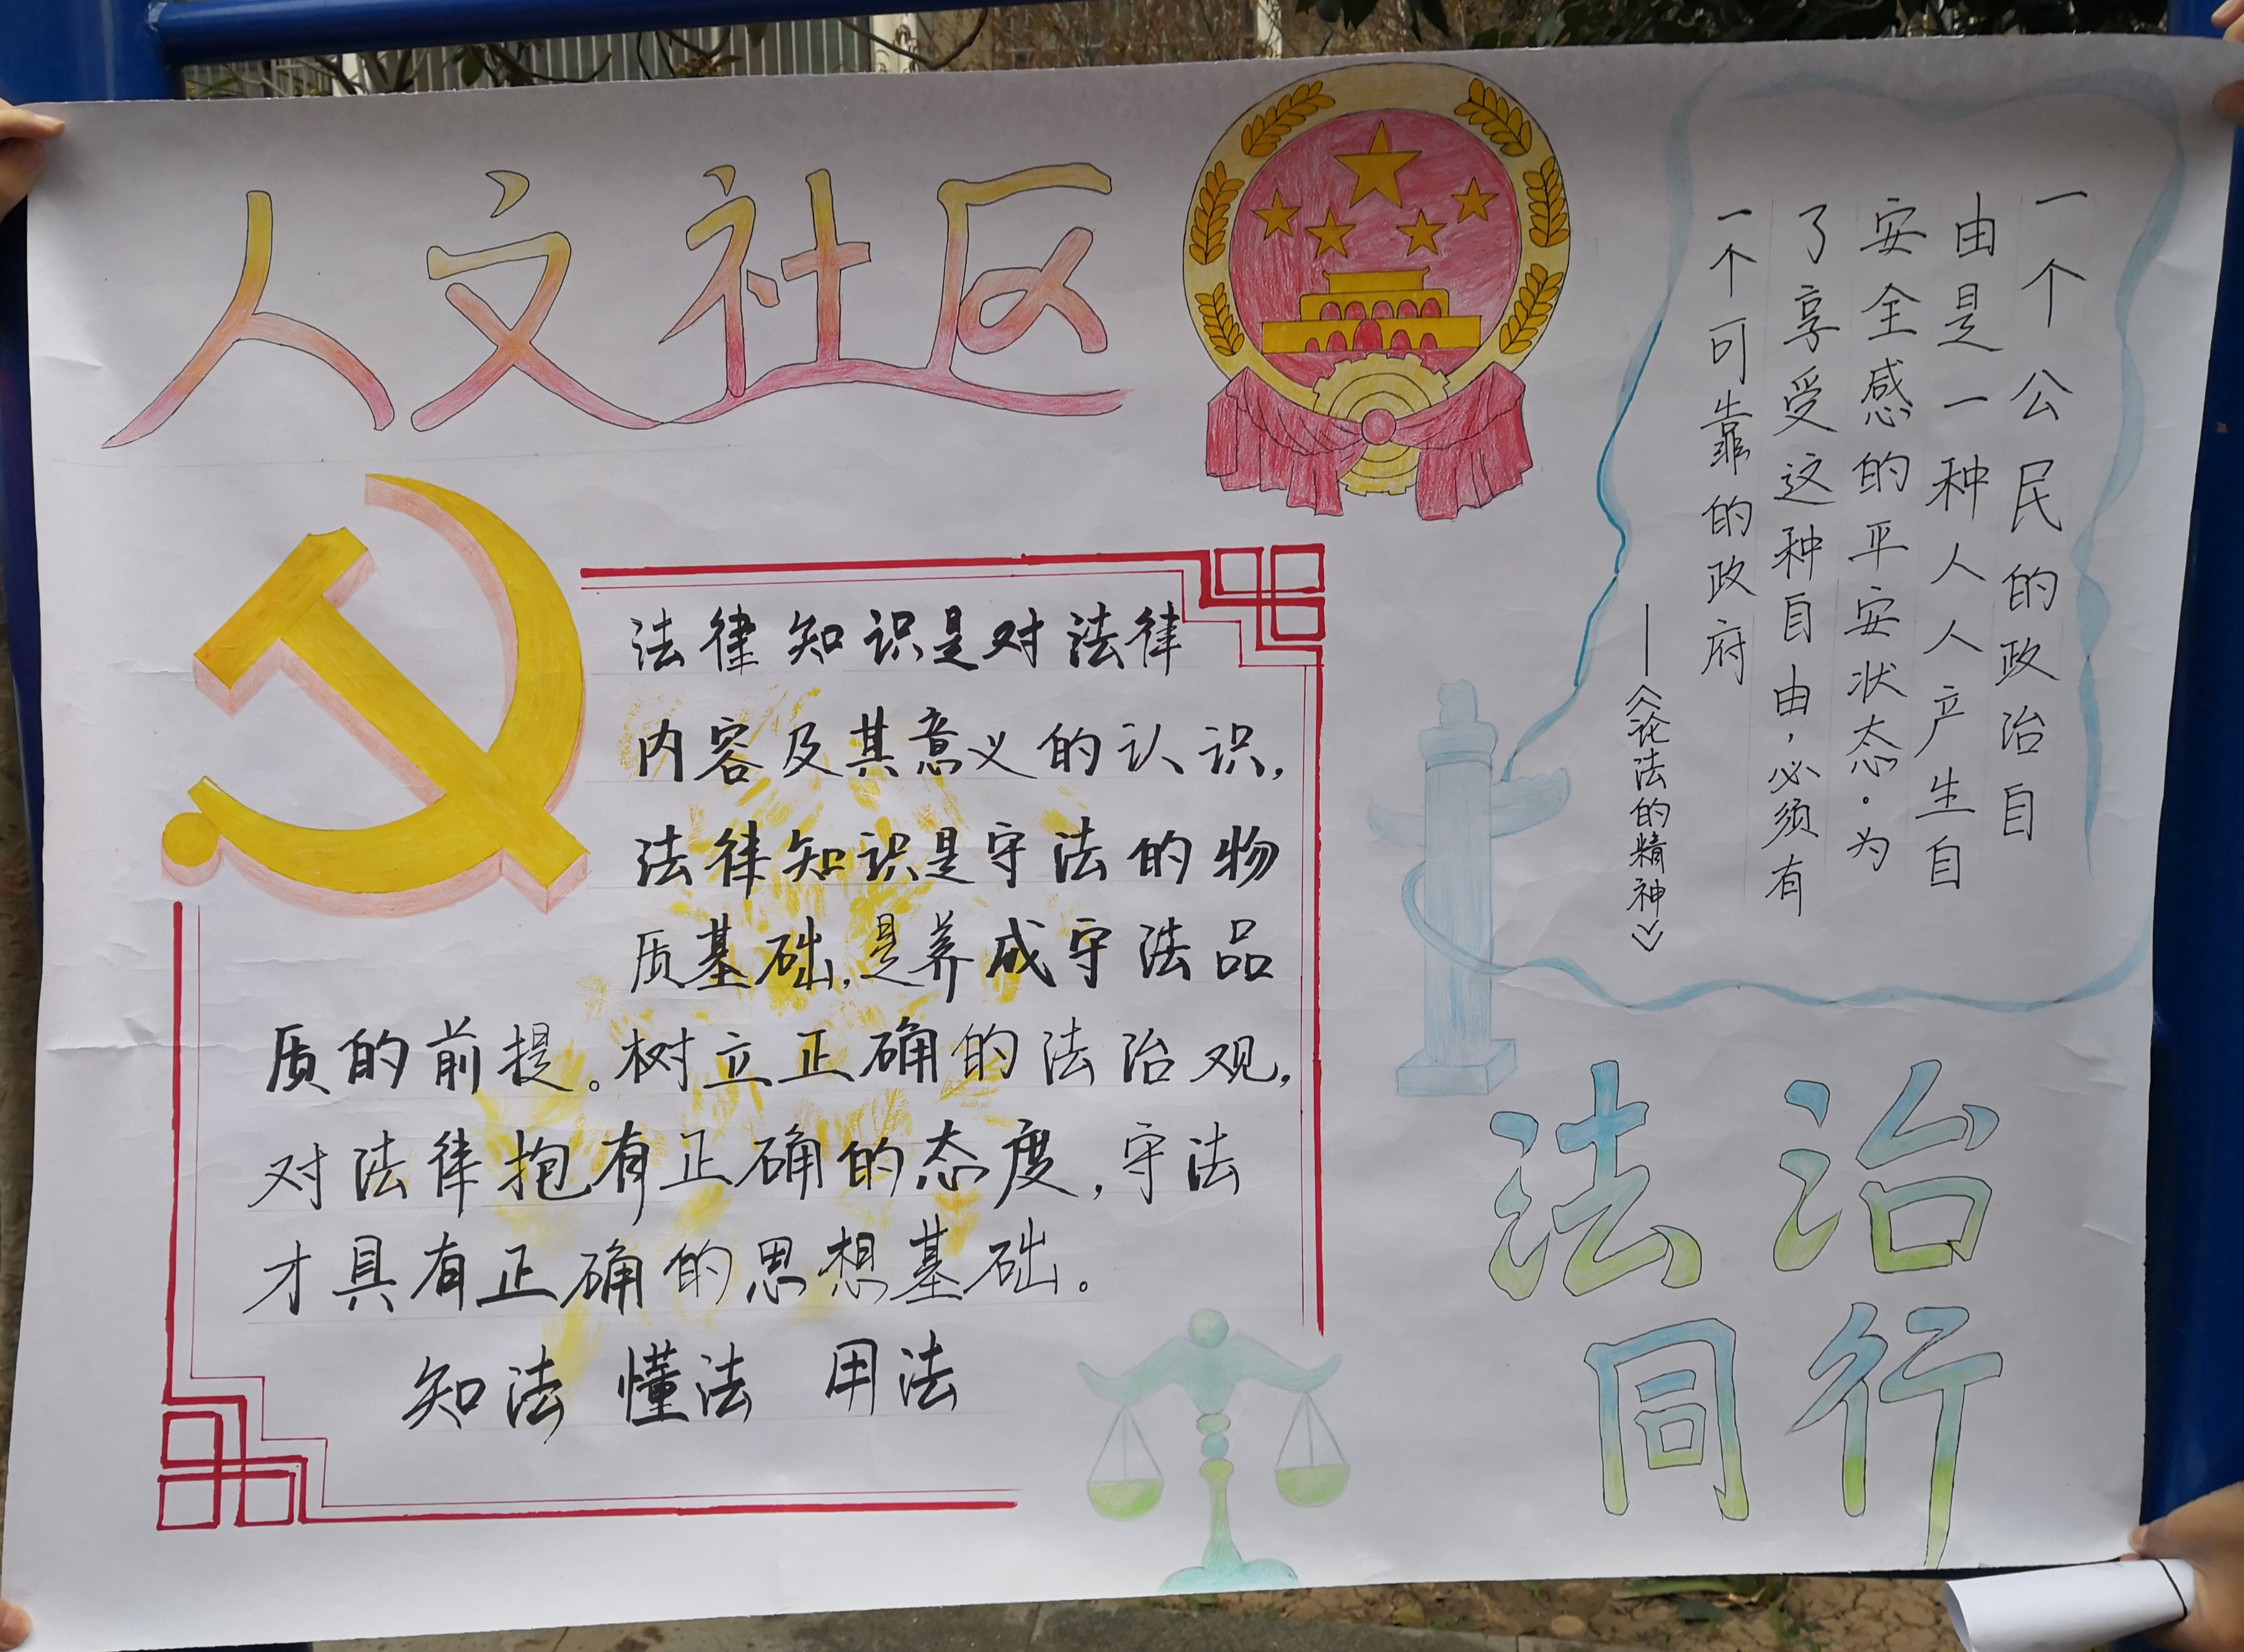 人文社区
法律知识是对法律
内容及其意义的认识，
法律知识是守法的物
质基础，是养成守法品
质的前提。树立正确的法治观，
对法律抱有正确的态度，守法
才具有正确的思想基础。
知法 懂法 用法
一个公民的政治自
由是一种人人产生自
安全感的平安状态。为
了享受这种自由，必须有
一个可靠的政府
——《论法的精神》
法治
同行